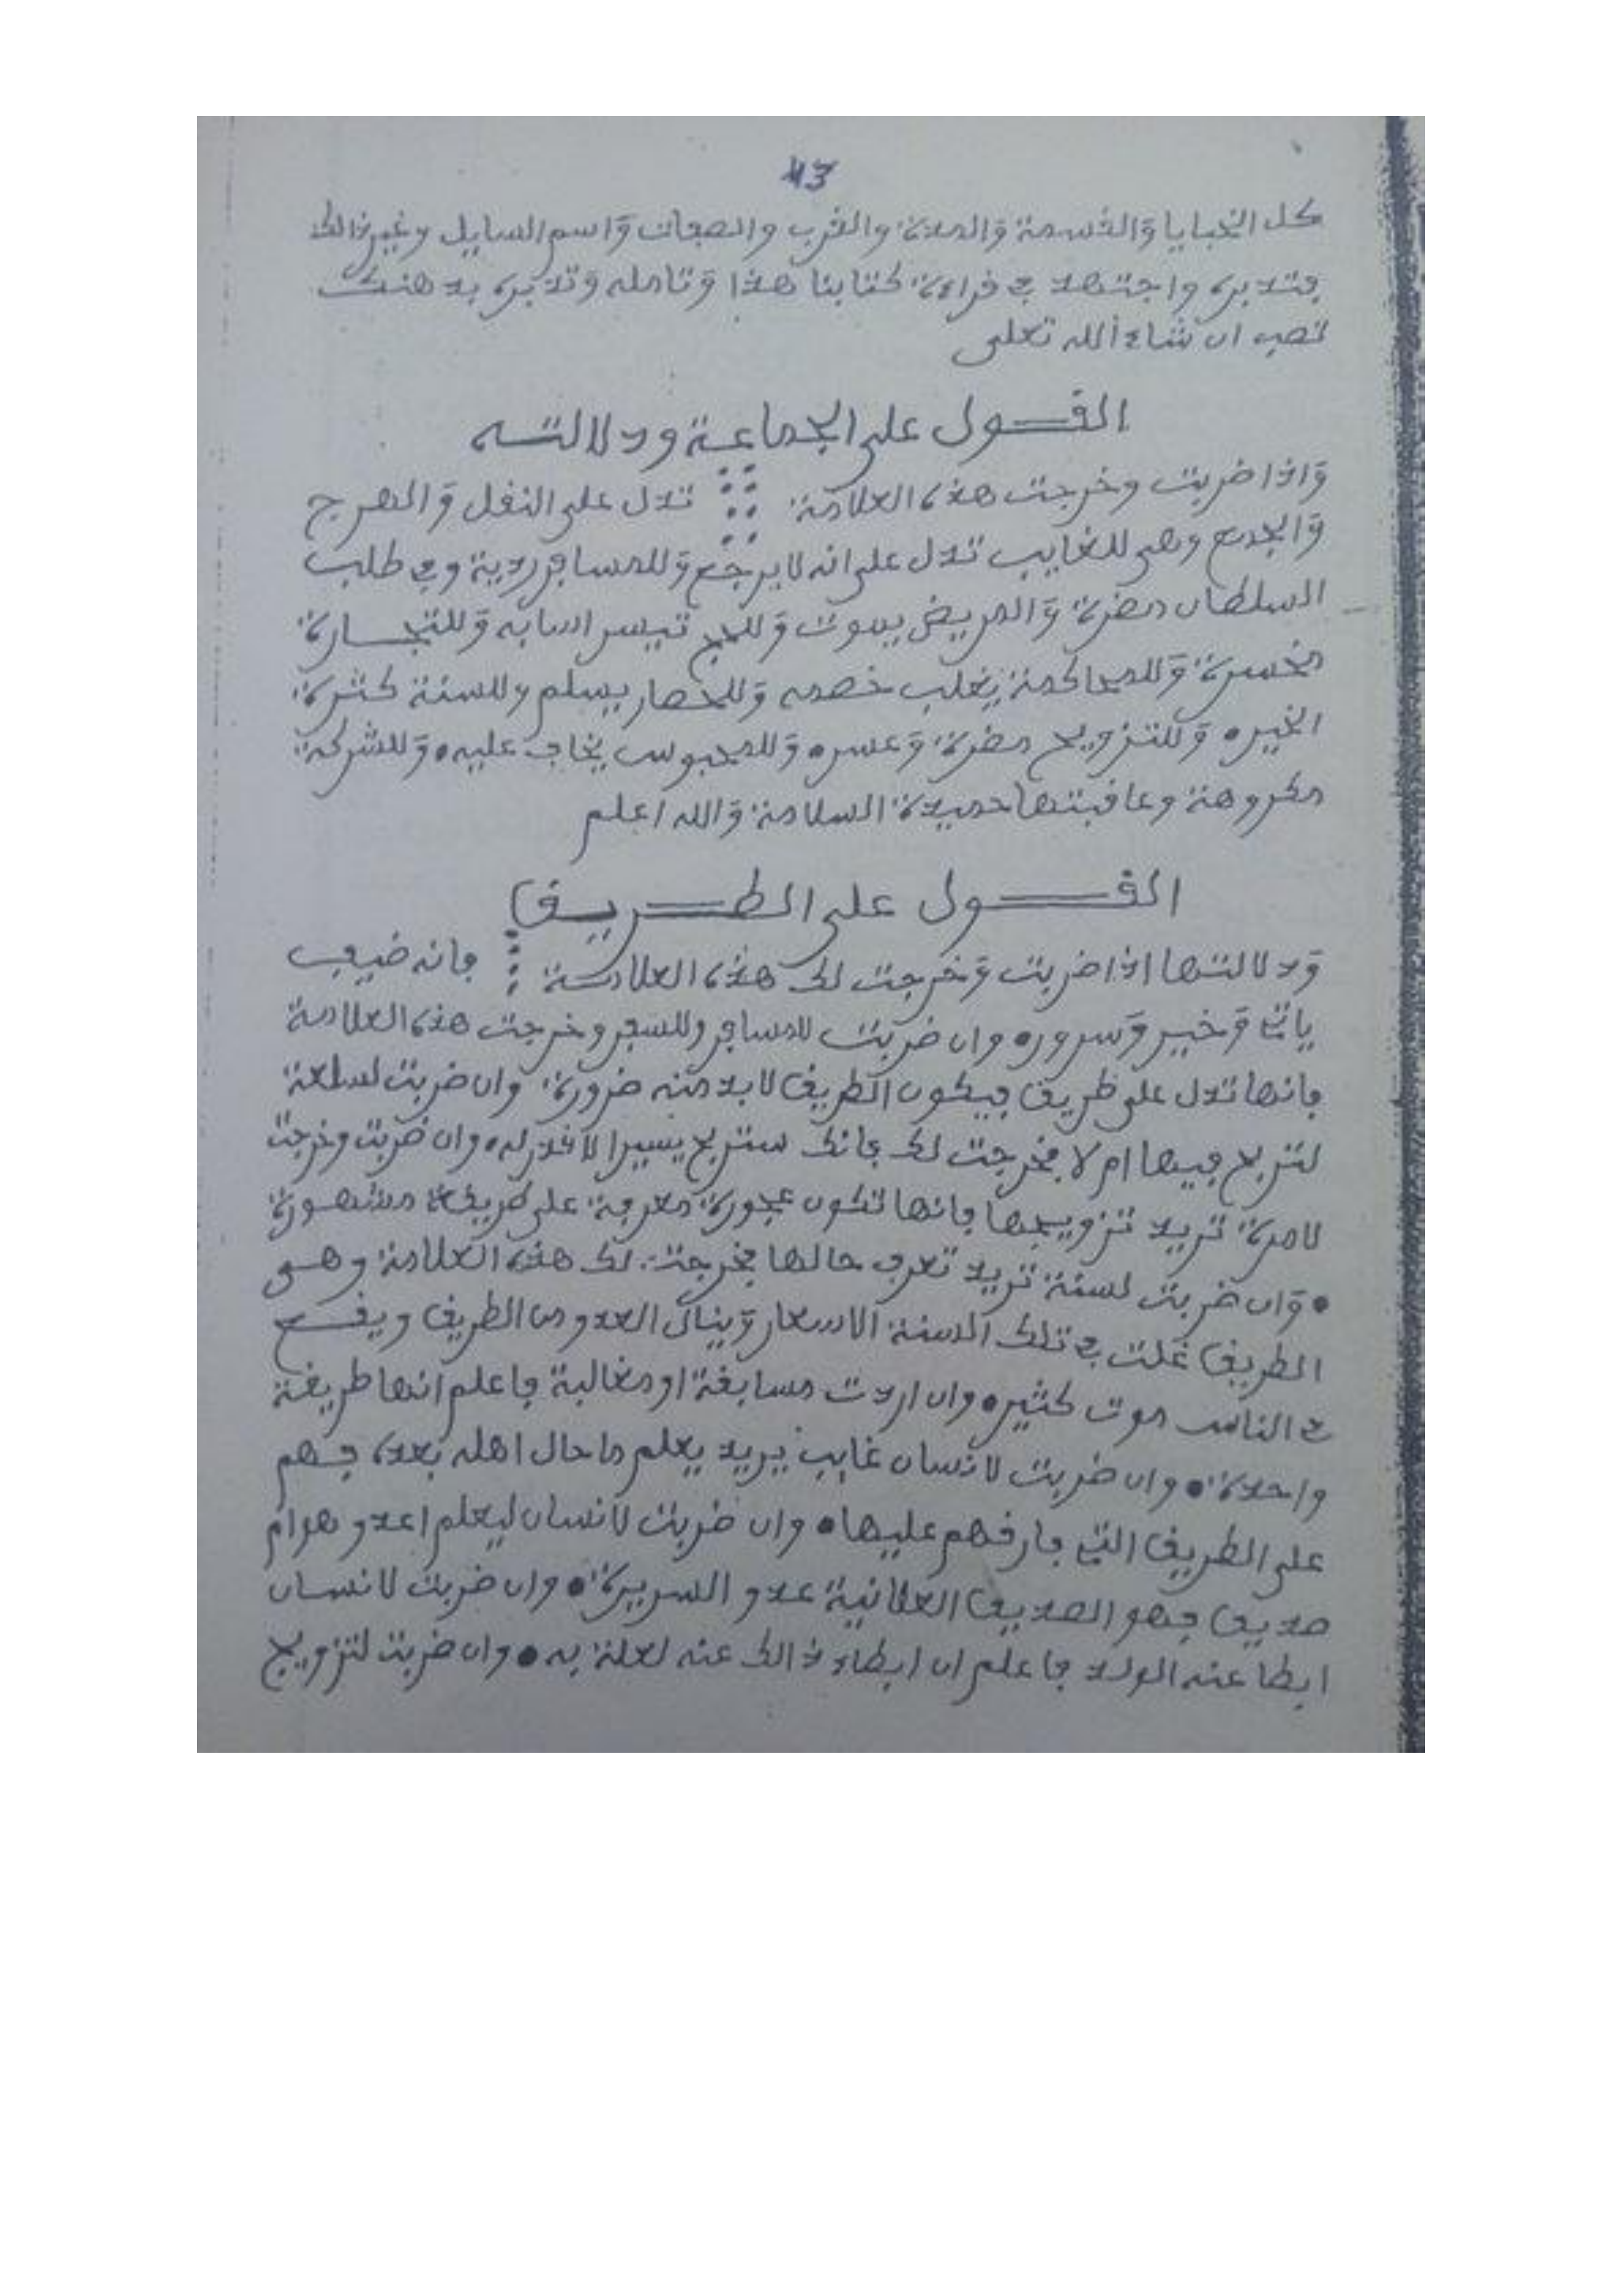 43
كل الخبايا والقسمة والمدة والقرب والصفات واسم السايل وغير ذالك
فتدبره واجتهد في قراءة كتابنا هذا وتامله وتدبره بذهنك
تصب ان شاء الله تعلى
القول على الجماعة ودلالته
واذا ضربت وخرجت هذه العلامة تدل على النقل والمهرج
والجمع وهي للغايب تدل على انه لا يرجع وللمسافر ردية وفي طلب
السلطان مضرة والمريض يموت وللحج تيسر اسبابه وللتجارة
مخسرة وللمحاكمة يغلب خصمه وللحصار يسلم وللسنة كثرة
الخير • وللتزويج مضرة وعسر • وللمحبوس يخاف عليه • وللشركة
مكروهة وعاقبتها حميدة السلامة والله اعلم
القول على الطريق
ودلالتها اذا ضربت وخرجت لك هذه العلامة فانه ضيف
ياتي وخير وسرور • وان ضربت للمسافر وللسفر وخرجت هذه العلامة
فانها تدل على طريق فيكون الطريق لابد منه ضرورة وان ضربت لسلعة
لتربح فيها ام لا فخرجت لك فانك ستربح يسيرا لا قدر له • وان ضربت وخرجت
لامرة تريد تزويجها فانها تكون عجوزة معرفة على طريقة مشهورة
• وان ضربت لسنة تريد تعرف حالها فخرجت لك هذه العلامة وهي
الطريق غلت في تلك السنة الاسعار وينال العدو من الطريق ويقع
في الناس موت كثير • وان اردت مسابقة او مغالبة فاعلم انها طريقة
واحدة • وان ضربت لانسان غايب يريد يعلم ما حال اهله بعده فهم
على الطريق التي فارقهم عليها • وان ضربت لانسان ليعلم اعدو هو ام
صديق فهو الصديق العلانية عدو السريرة • وان ضربت لانسان
ابطا عنه الولد فاعلم ان ابطاء ذالك عنه لعلة به • وان ضربت لتزويج